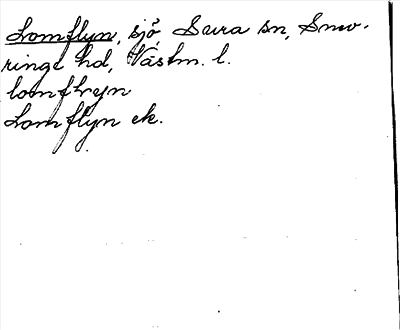 Lomflyn, sjö, Sura sn, Snev-
ringe hd, Västm. l.
lomflryn
Lomflyn ek.